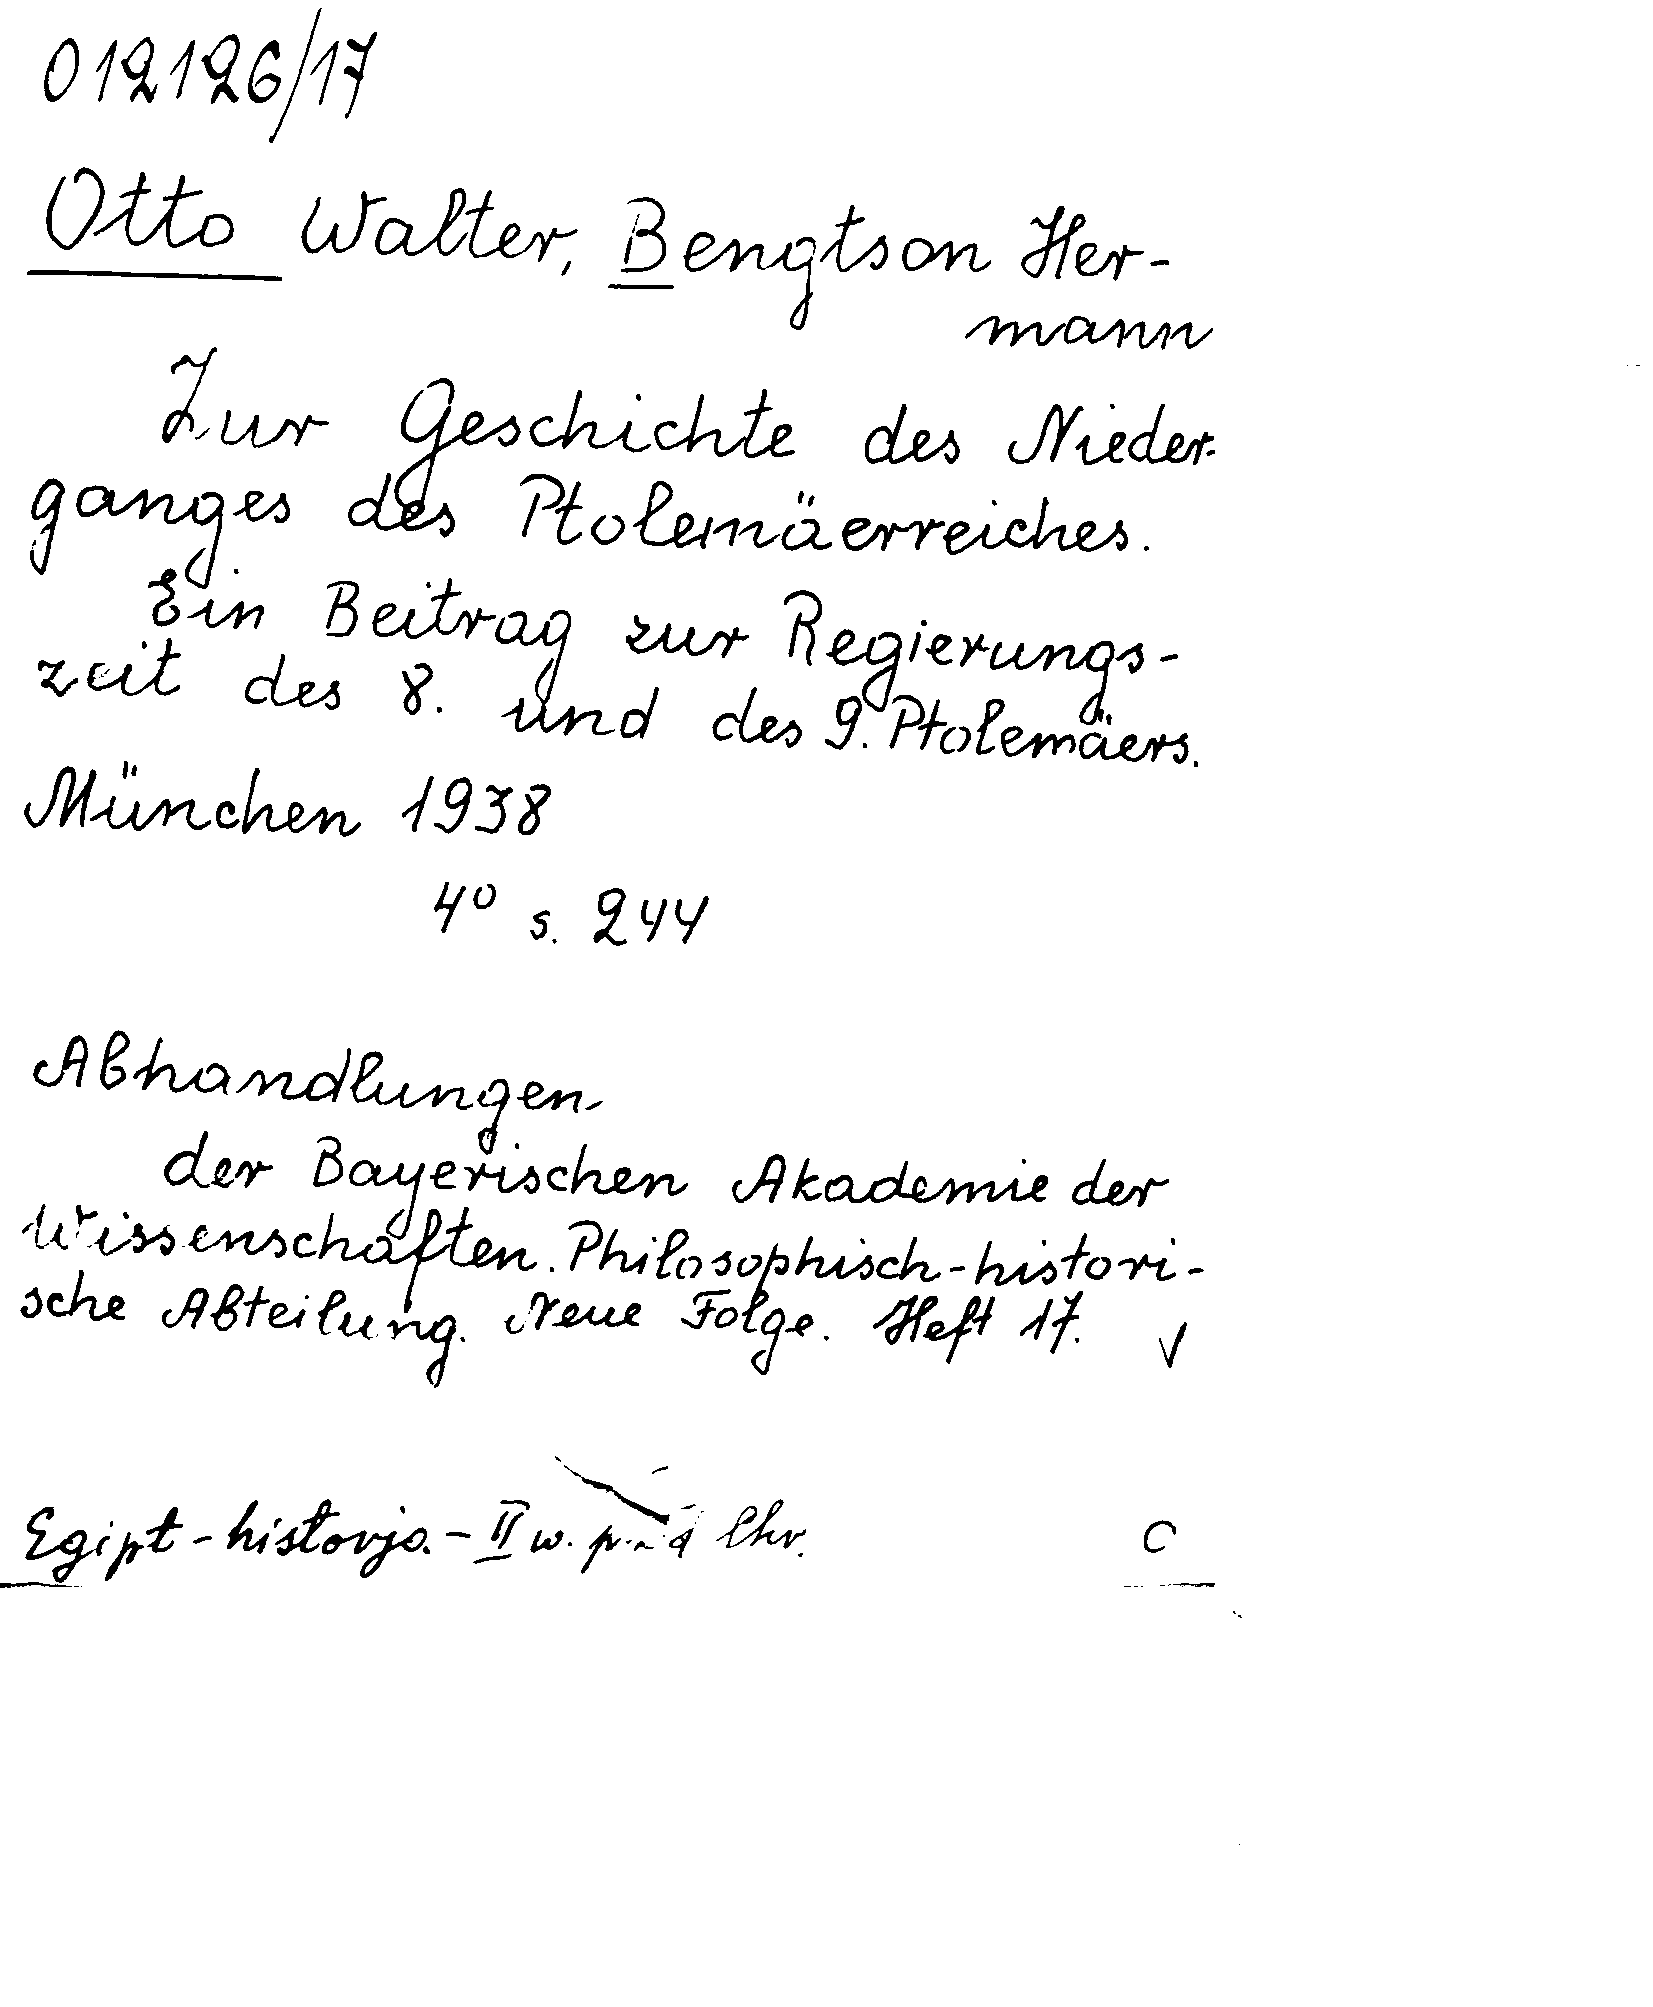 012126/17
Otto Walter, Bengtson Her-
mann
Zur Geschichte des Nieder-
ganges des Ptolemäerreiches.
Ein Beitrag zur Regierungs-
zeit des 8. und des 9. Ptolemäers.
München 1938
4° s. 244
Abhandlungen
der Bayerischen Akademie der
Wissenschaften. Philosophisch-histori-
sche Abteilung. Neue Folge. Heft 17. V
Egipt - historja - II w. Chr. C